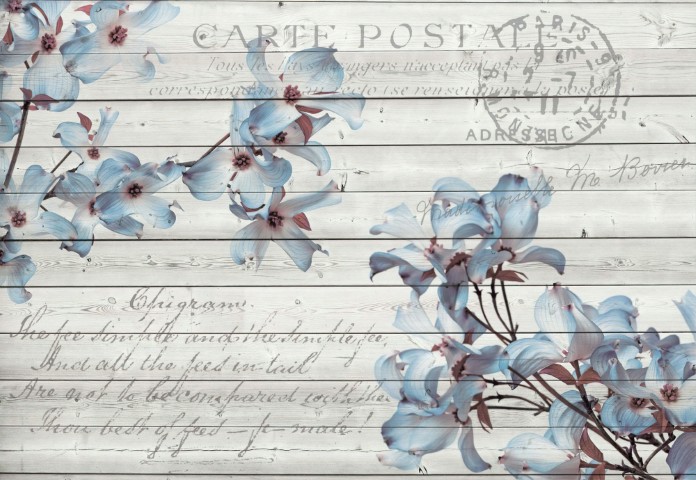 CARTE POSTALE
Tous les Pays étrangers n'acceptant pas la
correspondance au recto (se renseigner à la poste)
PARIS
ADRESSE
Epigram.
The fee simple and the simple fee,
And all the fees in tail
Are not to be compared with thee
Thou best of fees — fe-male!